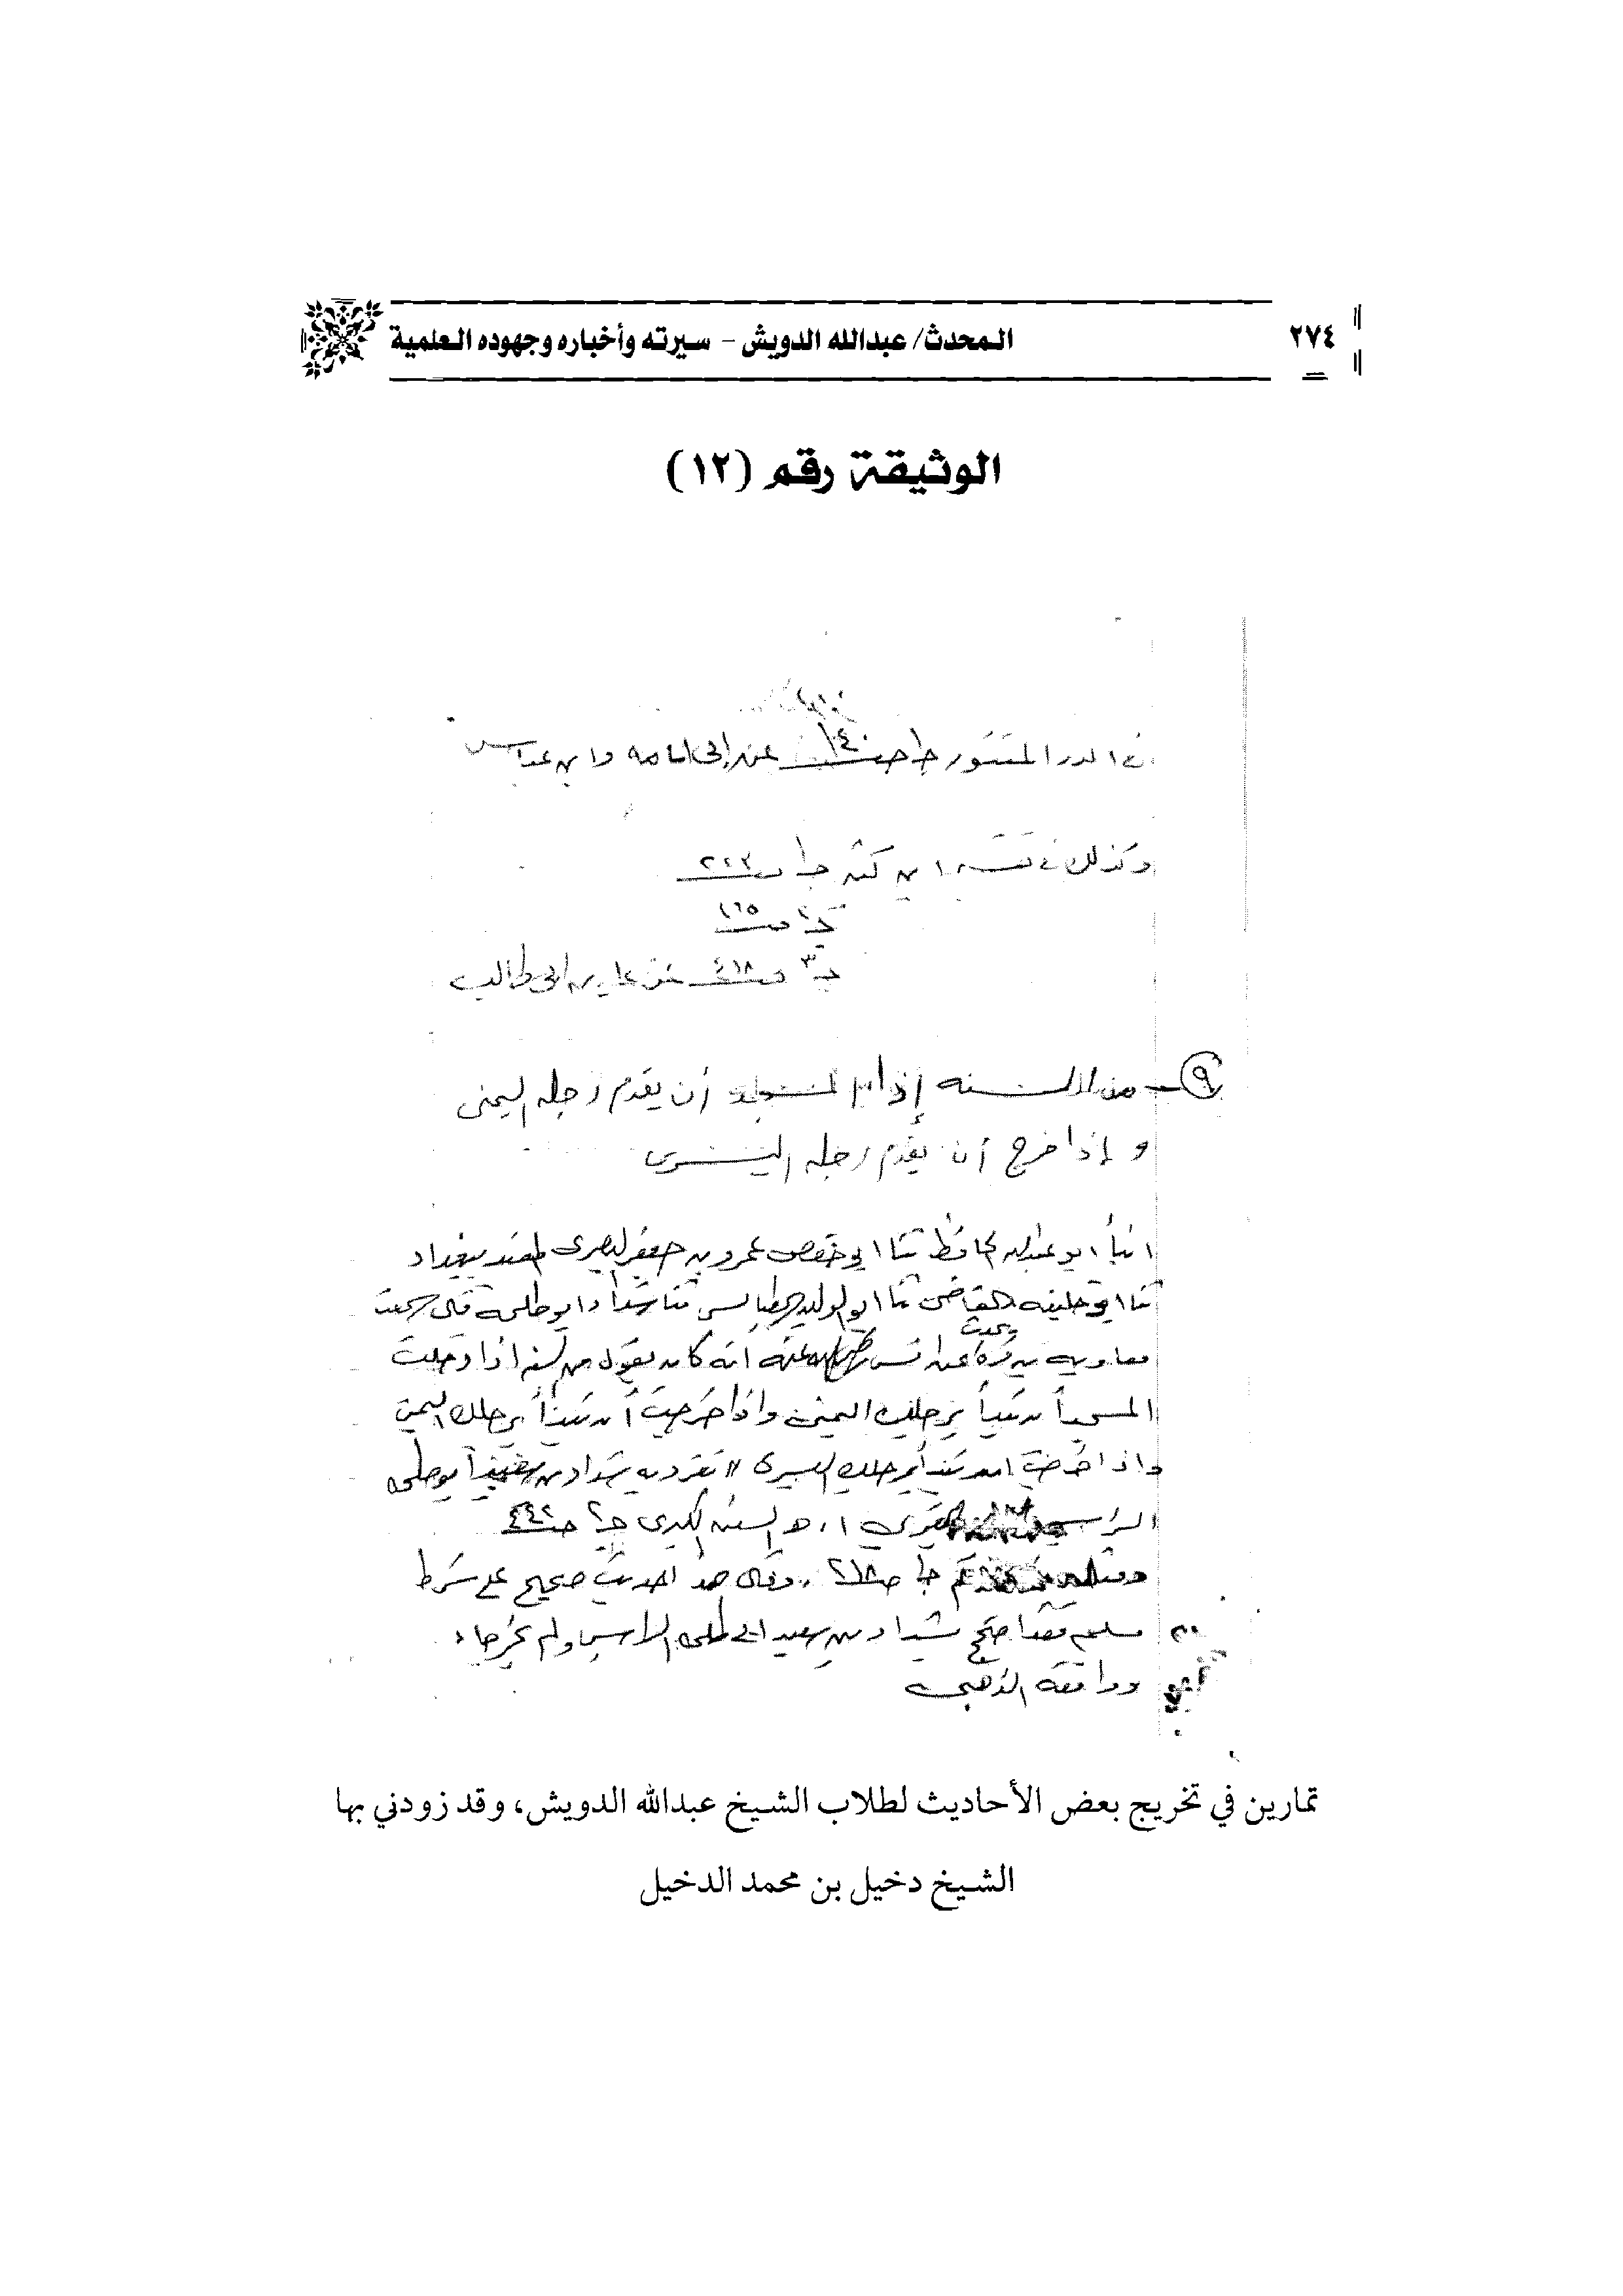 ٢٧٤
المحدث/ عبدالله الدويش - سيرته وأخباره وجهوده العلمية
الوثيقة رقم (١٢)
في الدر المنثور جـ١ صـ١٤٠ عن أبي أمامه وابن عباس
وكذلك في تفسير ابن كثير جـ١ صـ٢٢٣
جـ٢ صـ١٦٥
جـ٣ صـ٤١٨ عن علي بن أبي طالب
٩ـ من السنه إذا المسجد أن يقدم رجله اليمنى
و إذا خرج أن يقدم رجله اليسرى
انبأ ابو عبدالله الحافظ ثنا ابو حفص عمرو بن جعفر البصرى المفيد ببغداد
ثنا ابو خليفه القاضى ثنا ابو الوليد الطيالسى ثنا شداد ابو طلحة قال سمعت
معاويه بن قرة يحدث عن انس رضي الله عنه انه كان يقول من السنه اذا دخلت
المسجد أن تبدأ برجلك اليمنى واذا خرجت أن تبدأ برجلك اليمنى
واذا خرجت ان تبدأ برجلك اليسرى " تفرد به شداد بن سعيد أبو طلحه
الراسبي ا.هـ السنن الكبرى جـ٢ صـ٤٤٢
جـ١ صـ٢١٨ وقال هذا حديث صحيح على شرط
مسلم فقد احتج بشداد بن سعيد ابي طلحه الراسبي ولم يخرجاه
ووافقه الذهبي
تمارين في تخريج بعض الأحاديث لطلاب الشيخ عبدالله الدويش، وقد زودني بها
الشيخ دخيل بن محمد الدخيل